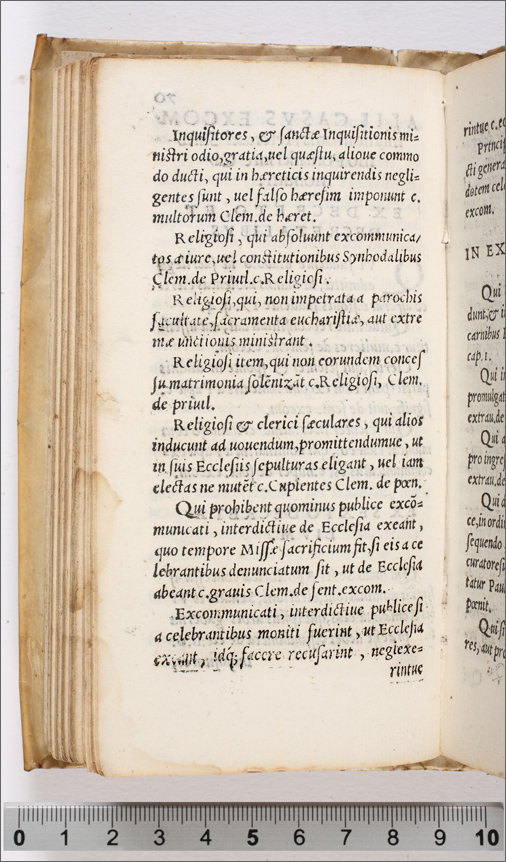 Inquisitores, & sanctæ Inquisitionis mi-
nistri odio, gratia, uel quæstu, alioue commo
do ducti, qui in hæreticis inquirendis negli-
gentes sunt, uel falso hæresim imponunt c.
multorum Clem. de hæret.
Religiosi, qui absoluunt excommunica-
tos a iure, uel constitutionibus Synhodalibus
Clem. de Priuil. c. Religiosi.
Religiosi, qui, non impetrata a parochis
facultate, sacramenta eucharistiæ, aut extre
mæ unctionis ministrant.
Religiosi item, qui non eorundem conces
su matrimonia solẽnizãt c. Religiosi, Clem.
de priuil.
Religiosi & clerici sæculares, qui alios
inducunt ad uouendum, promittendumue, ut
in suis Ecclesiis sepulturas eligant, uel iam
electas ne mutẽt c. Cupientes Clem. de pœn.
Qui prohibent quominus publice excõ-
municati, interdictiue de Ecclesia exeant,
quo tempore Missæ sacrificium fit, si eis a ce
lebrantibus denunciatum sit, ut de Ecclesia
abeant c. grauis Clem. de sent. excom.
Excommunicati, interdictiue publice si
a celebrantibus moniti fuerint, ut Ecclesia
exeant, idq; facere recusarint, neglexe-
rintue
rintue c. eo
Princip
cti genera
dotem cele
excom.
IN EX
Qui
dunt, & i
carnibus
cap. 1.
Qui i
promulgat
extrau. de
Qui a
pro ingre
extrau. de
Qui d
ce, in ordi
sequendo
curatores
tatur Pau
pœnit.
Qui si
res, aut pro
0 1 2 3 4 5 6 7 8 9 10